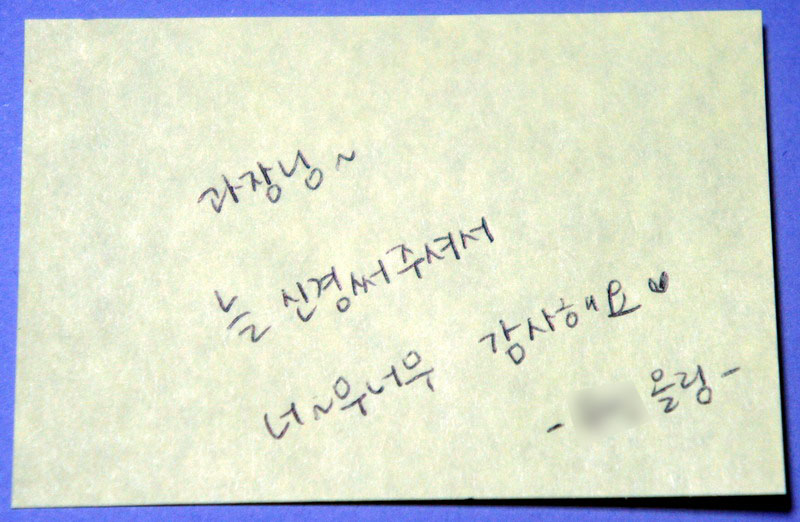 과장닝~
늘 신경써주셔서
너~무너무 감사해요♥
- 올림 -